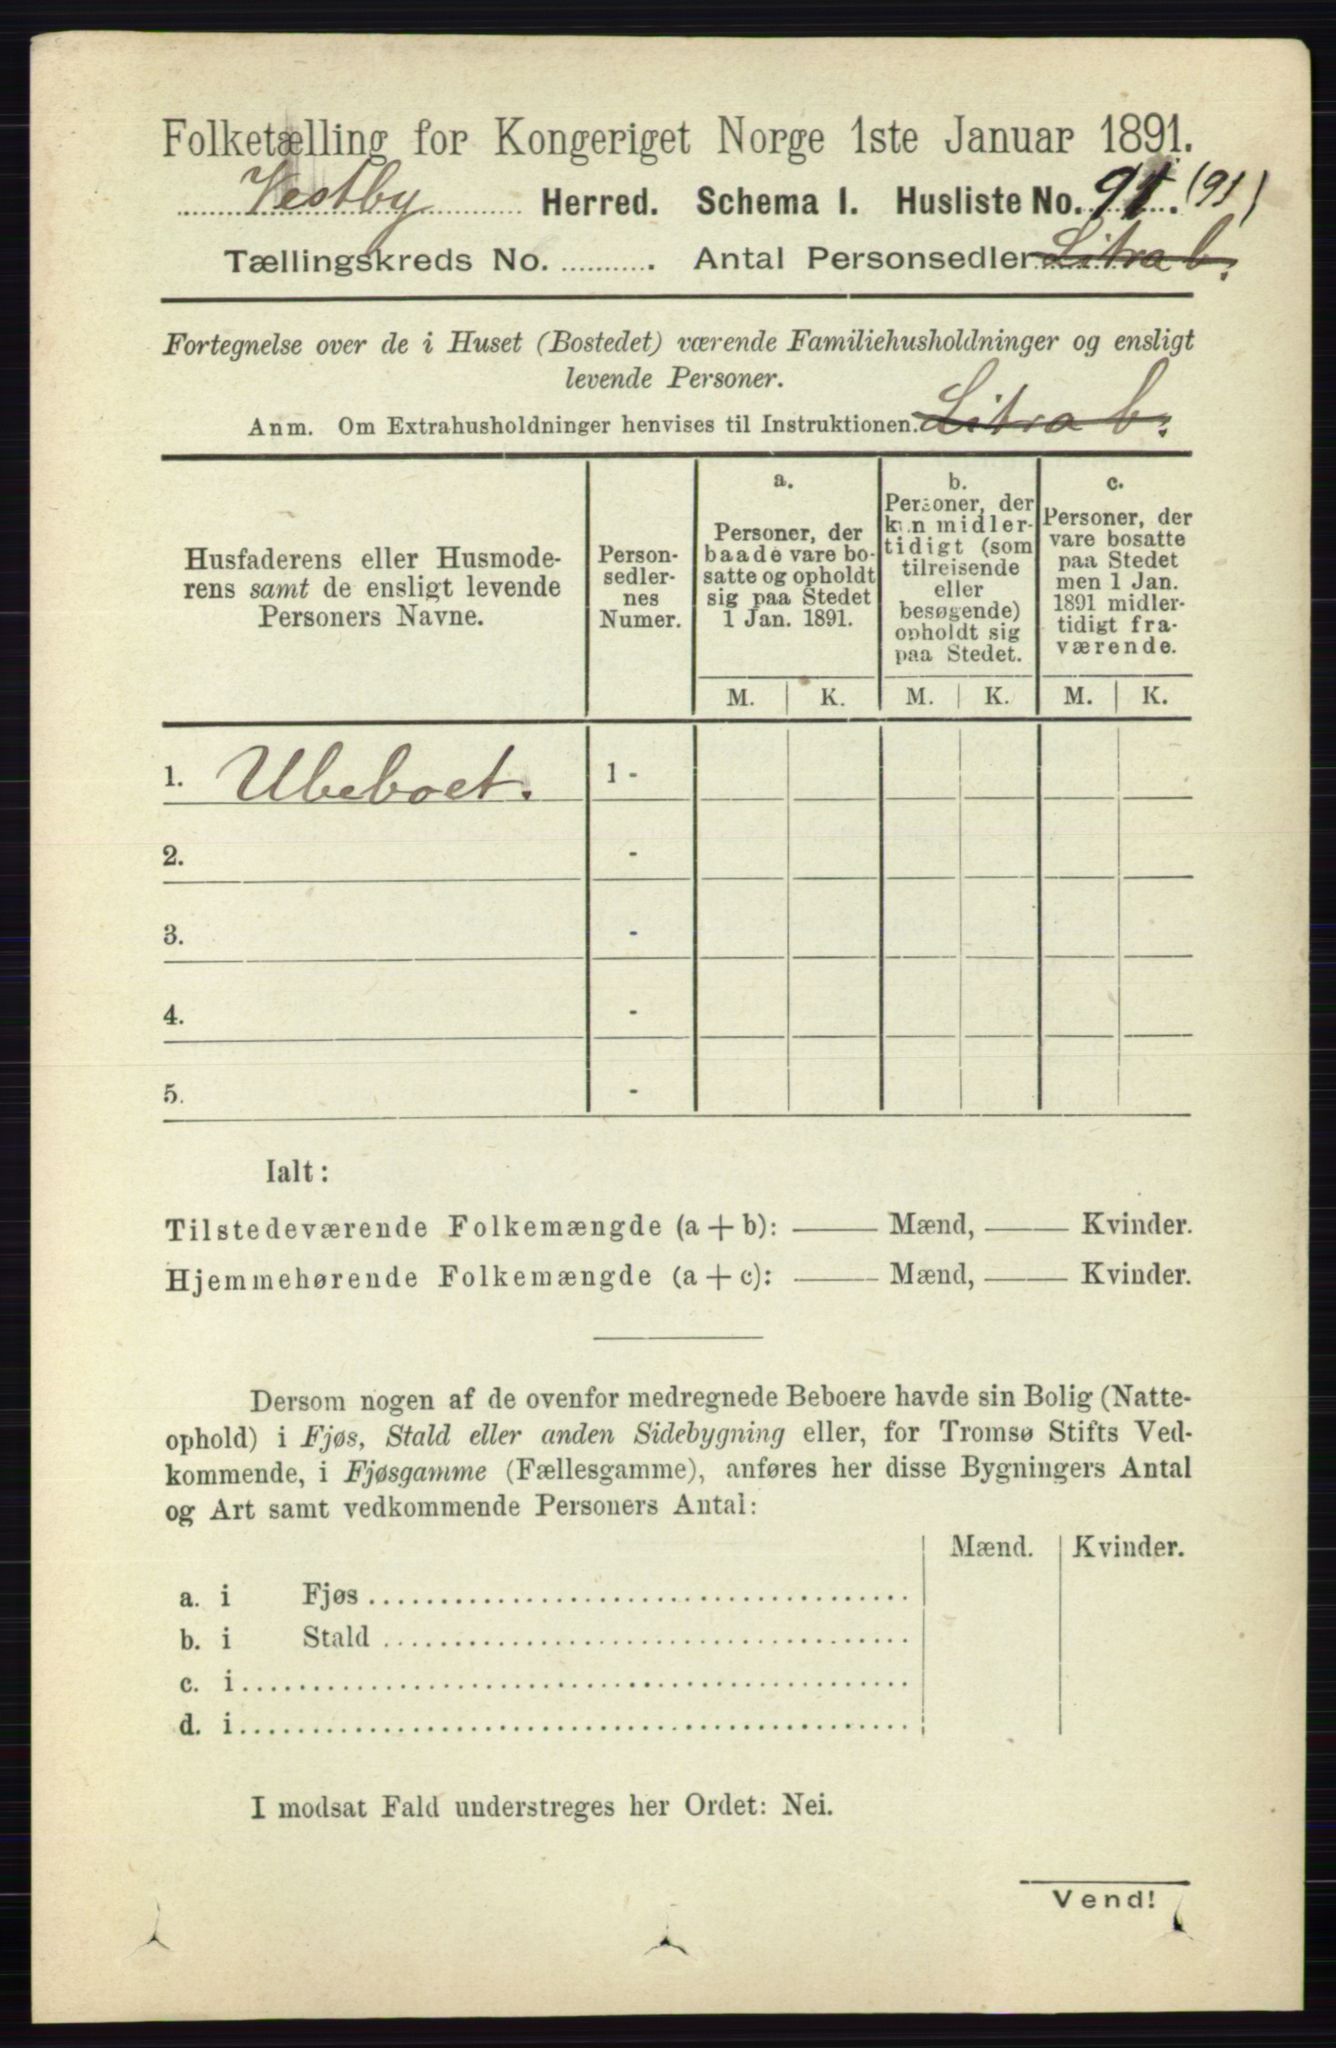 Folketælling for Kongeriget Norge 1ste Januar 1891.
Vestby Herred. Schema I. Husliste No. 91. (91)
Tællingskreds No. ........... Antal Personsedler Litra b.
Fortegnelse over de i Huset (Bostedet) værende Familiehusholdninger og ensligt
levende Personer.
Anm. Om Extrahusholdninger henvises til Instruktionen. Litra b.
Husfaderens eller Husmode-
rens samt de ensligt levende
Personers Navne.
Person-
sedler-
nes
Numer.
a.
Personer, der
baade vare bo-
satte og opholdt
sig paa Stedet
1 Jan. 1891.
b.
Personer, der
kun midler-
tidigt (som
tilreisende
eller
besøgende)
opholdt sig
paa Stedet.
c.
Personer, der
vare bosatte
paa Stedet
men 1 Jan.
1891 midler-
tidigt fra-
værende.
M. K. M. K. M. K.
1. Ubeboet. 1 -
2. -
3. -
4. -
5. -
Ialt:
Tilstedeværende Folkemængde (a + b): —— Mænd, —— Kvinder.
Hjemmehørende Folkemængde (a + c): —— Mænd, —— Kvinder.
Dersom nogen af de ovenfor medregnede Beboere havde sin Bolig (Natte-
ophold) i Fjøs, Stald eller anden Sidebygning eller, for Tromsø Stifts Ved-
kommende, i Fjøsgamme (Fællesgamme), anføres her disse Bygningers Antal
og Art samt vedkommende Personers Antal:
Mænd. Kvinder.
a. i Fjøs
b. i Stald
c. i
d. i
I modsat Fald understreges her Ordet: Nei.
Vend!